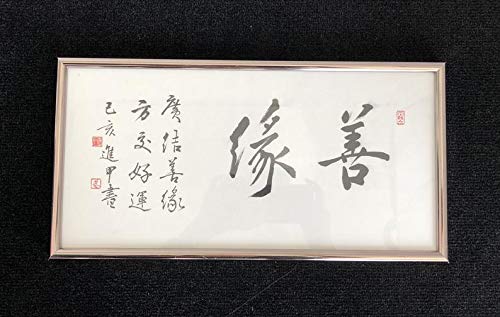 善缘
廣结善缘
方交好運
己亥進甲書